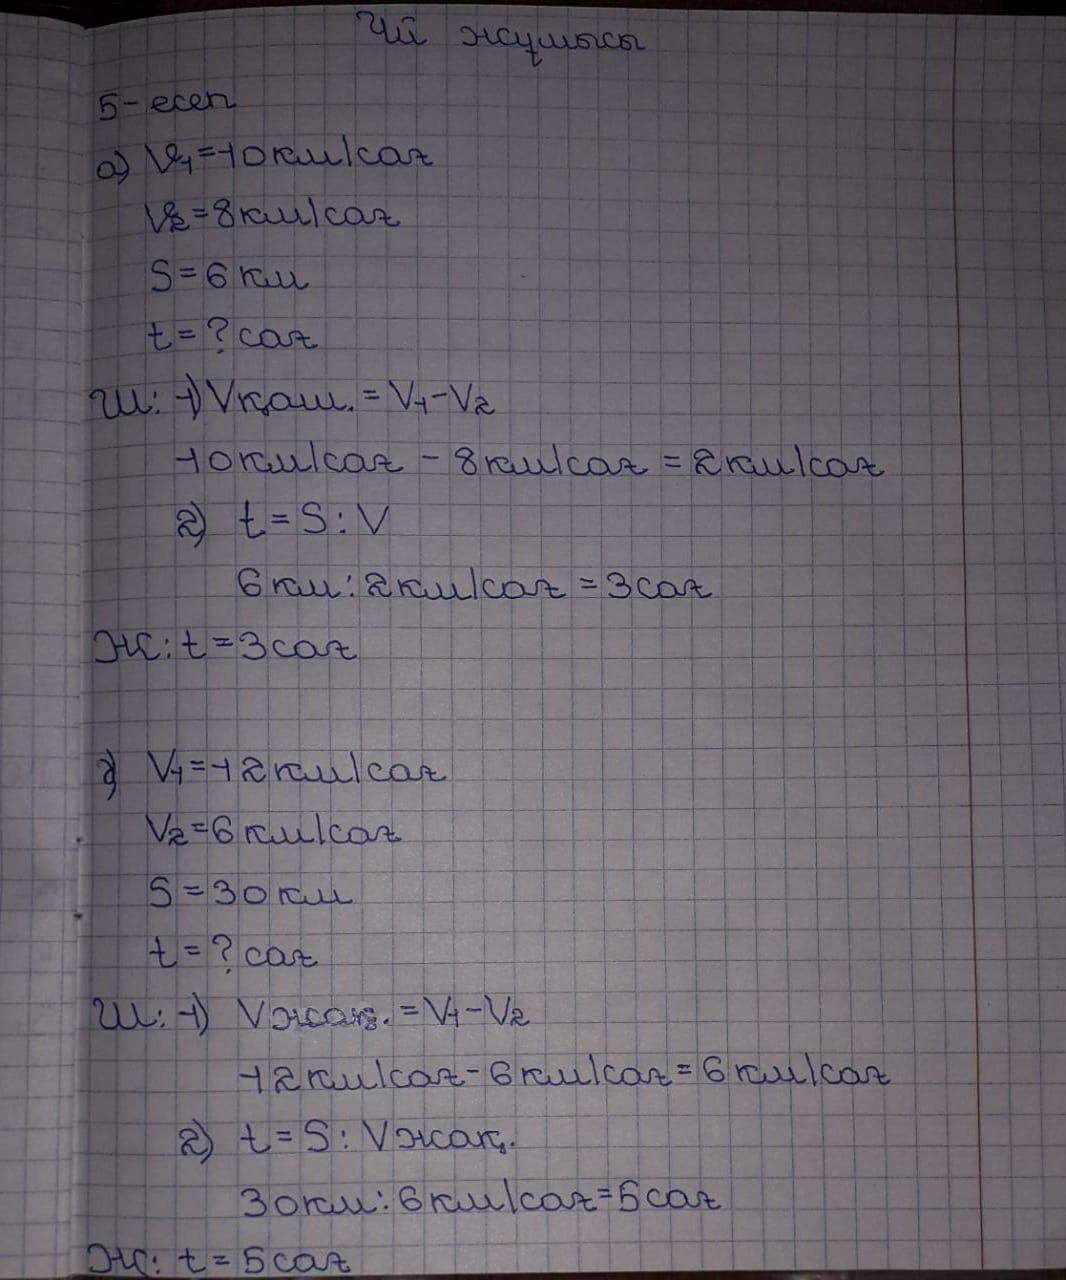 Үй жұмысы
5-есеп
а) V₁=10км/сағ
V₂=8км/сағ
S=6км
t=?сағ
Ш: 1) Vқаш.=V₁-V₂
10км/сағ - 8км/сағ = 2км/сағ
2) t=S:V
6км:2км/сағ =3сағ
Ж: t=3сағ
ә) V₁=12км/сағ
V₂=6км/сағ
S=30км
t=?сағ
Ш: 1) Vжақ.=V₁-V₂
12км/сағ-6км/сағ=6км/сағ
2) t=S:Vжақ.
30км:6км/сағ=5сағ
Ж: t=5сағ